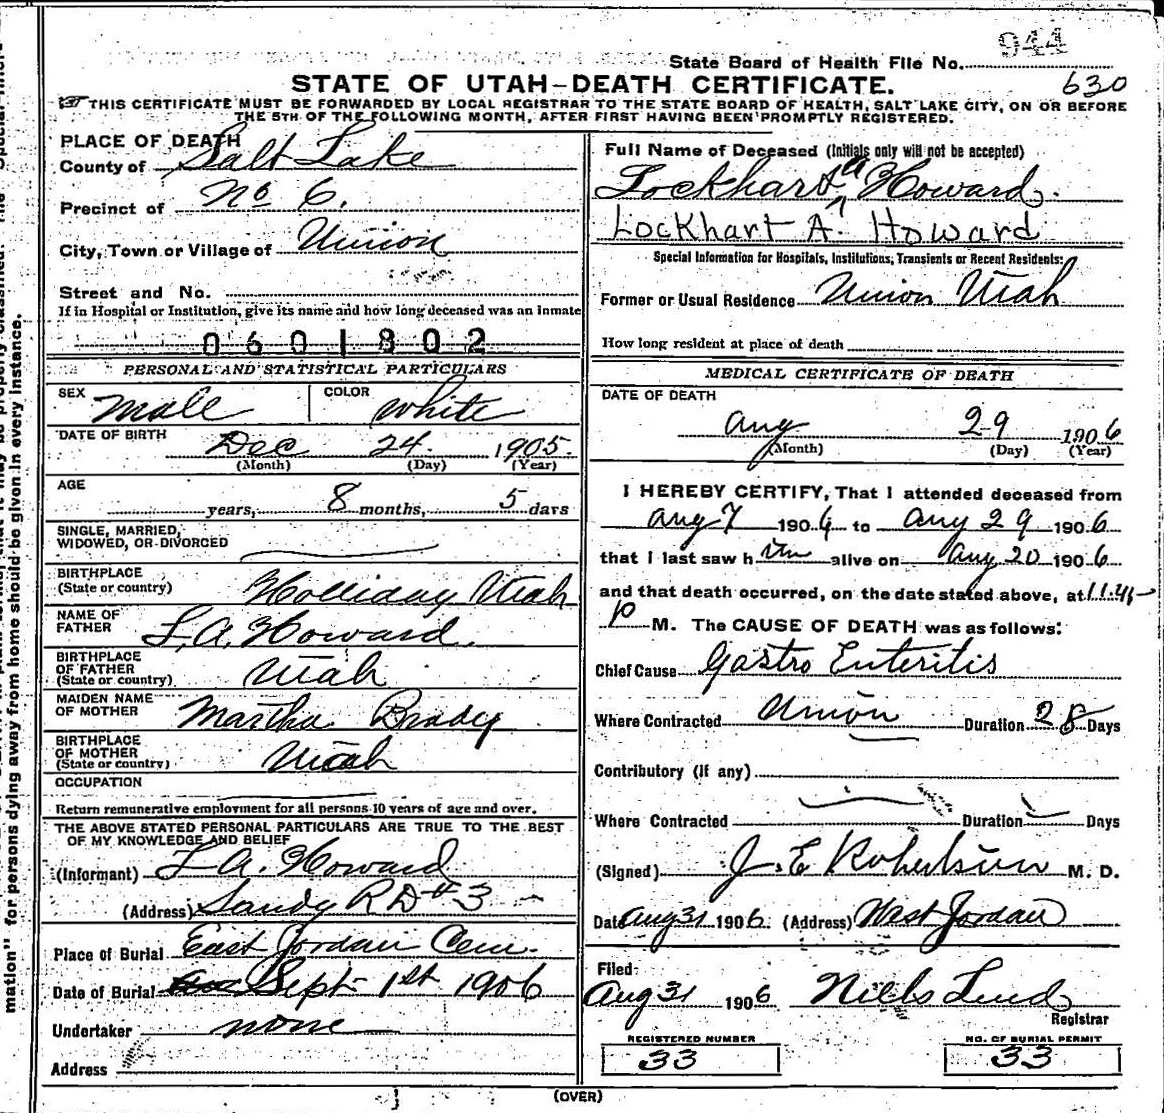 944
State Board of Health File No.
630
STATE OF UTAH—DEATH CERTIFICATE.
THIS CERTIFICATE MUST BE FORWARDED BY LOCAL REGISTRAR TO THE STATE BOARD OF HEALTH, SALT LAKE CITY, ON OR BEFORE
THE 5TH OF THE FOLLOWING MONTH, AFTER FIRST HAVING BEEN PROMPTLY REGISTERED.
PLACE OF DEATH
County of Salt Lake
Precinct of No 6.
City, Town or Village of Union
Street and No.
If in Hospital or Institution, give its name and how long deceased was an inmate
0601802
PERSONAL AND STATISTICAL PARTICULARS
SEX Male COLOR White
DATE OF BIRTH Dec 24 1905.
(Month) (Day) (Year)
AGE
years, 8 months, 5 days
SINGLE, MARRIED,
WIDOWED, OR DIVORCED
BIRTHPLACE
(State or country) Holliday Utah
NAME OF
FATHER L. A. Howard.
BIRTHPLACE
OF FATHER
(State or country) Utah
MAIDEN NAME
OF MOTHER Martha Brady
BIRTHPLACE
OF MOTHER
(State or country) Utah
OCCUPATION
Return remunerative employment for all persons 10 years of age and over.
THE ABOVE STATED PERSONAL PARTICULARS ARE TRUE TO THE BEST
OF MY KNOWLEDGE AND BELIEF
(Informant) L A. Howard
(Address) Sandy R D # 3
Place of Burial East Jordan Cem.
Date of Burial Sept 1st 1906
Undertaker none
Address
Full Name of Deceased (Initials only will not be accepted)
Lockhart A Howard.
Lockhart A. Howard
Special Information for Hospitals, Institutions, Transients or Recent Residents:
Former or Usual Residence Union Utah
How long resident at place of death
MEDICAL CERTIFICATE OF DEATH
DATE OF DEATH
Aug 29 1906
(Month) (Day) (Year)
I HEREBY CERTIFY, That I attended deceased from
Aug 7 1906 to Aug 29 1906
that I last saw him alive on Aug 20 1906
and that death occurred, on the date stated above, at 11.45
P M. The CAUSE OF DEATH was as follows:
Chief Cause Gastro Enteritis
Where Contracted Union Duration 28 Days
Contributory (if any)
Where Contracted Duration Days
(Signed) J. E Robertson M. D.
Date Aug 31 1906 (Address) West Jordan
Filed
Aug 31 1906 Niels Lind
Registrar
REGISTERED NUMBER
33
NO. OF BURIAL PERMIT
33
(OVER)
mation" for persons dying away from home should be given in every instance.